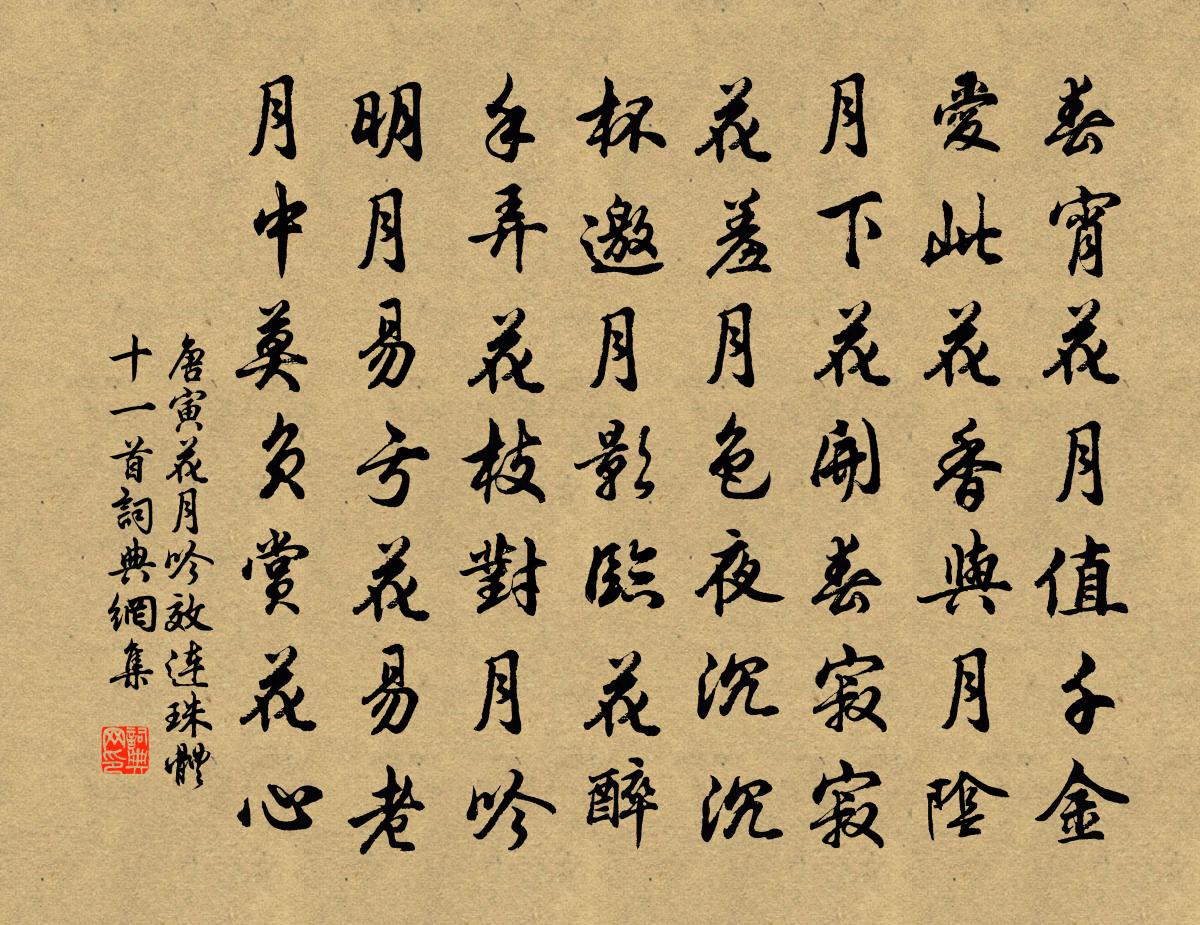 春宵花月值千金
愛此花香與月陰
月下花開春寂寂
花羞月色夜沉沉
杯邀月影臨花醉
手弄花枝對月吟
明月易亏花易老
月中莫負賞花心
唐寅花月吟效連珠體
十一首詞典網集
詞典
网印